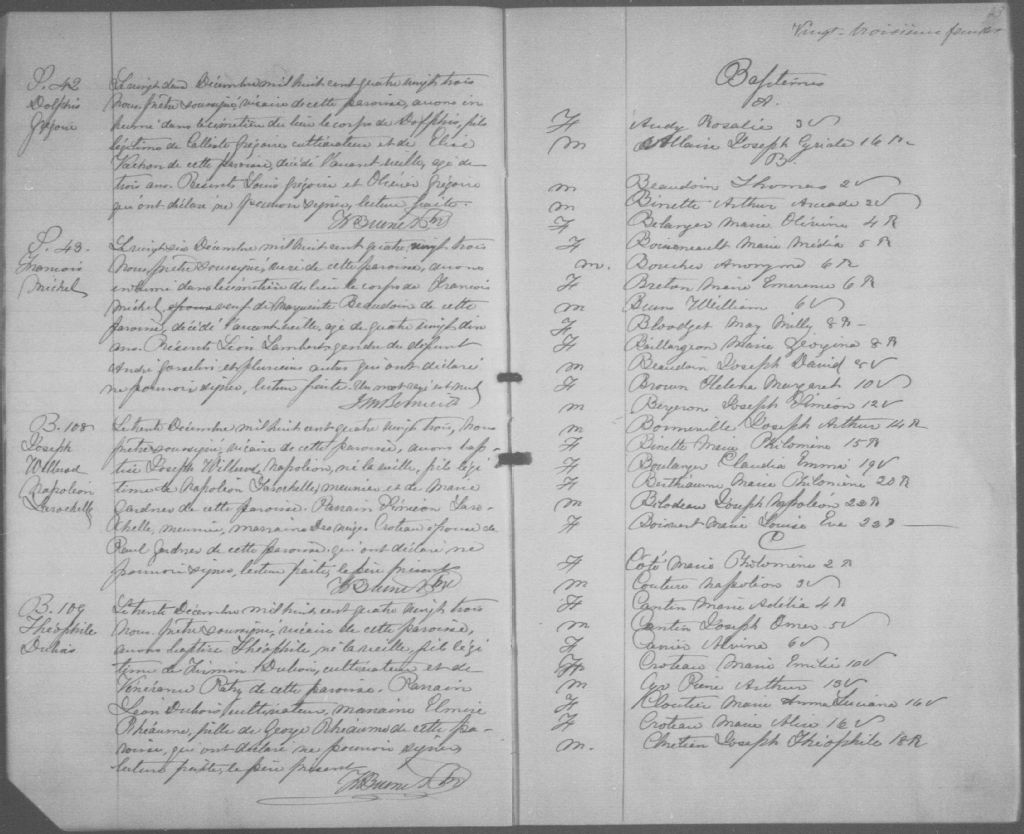 S. 42
Dolphis
Grégoire
Le vingt deux Décembre mil huit cent quatre vingt trois
Nous, prêtre soussigné, vicaire de cette paroisse, avons in
humé dans le cimetière du lieu le corps de Dolphis, fils
légitime de Calixte Grégoire cultivateur et de Elise
Vachon de cette paroisse, décédé l'avant veille, agé de
trois ans. Présents Louis Grégoire et Olivier Grégoire
qui ont déclaré ne pouvoir signer, lecture faite.
S. 43.
Francois
Michel
Le vingt six Décembre mil huit cent quatre vingt trois
Nous, prêtre soussigné, curé de cette paroisse, avons
inhumé dans le cimetière du lieu le corps de Francois
Michel, epoux veuf de Marguerite Beaudoin de cette
paroisse, décédé l'avant veille, agé de quatre vingt dix
ans. Présents Léon Lambert gendre du défunt
André Gosselin et plusieurs autres qui ont déclaré
ne pouvoir signer, lecture faite. Un mot rayé est nul
B. 108
Joseph
Willerod
Napoléon
Larochelle
Le trente Décembre mil huit cent quatre vingt trois, Nous
prêtre soussigné, vicaire de cette paroisse, avons bap-
tisé Joseph Napoléon, né la veille, fils légi
time de Napoléon Larochelle, meunier et de Marie
Gardner de cette paroisse. Parrain Siméon Laro-
chelle, meunier, marraine Desneiges Croteau épouse de
Paul Gardner de cette paroisse qui ont déclaré ne
pouvoir signer, lecture faite, le père présent
B. 109
Théophile
Dubois
Le trente Décembre mil huit cent quatre vingt trois
Nous, prêtre soussigné, vicaire de cette paroisse,
avons baptisé Théophile, né la veille, fils légi
time de Firmin Dubois, cultivateur et de
Vénérance de cette paroisse. Parrain
Léon Dubois, cultivateur, marraine Elmire
Rhéaume, fille de George Rhéaume de cette pa-
roisse, qui ont déclaré ne pouvoir signer
lecture faite, le père présent
Vingt-troisième feuillet
Baptêmes
A.
F Audy Rosalie 3 V
m Allaire Joseph 16 R
B
m Beaudoin Thomas 2 V
m Binette Arthur Arcade 2 V
F Belanger Marie Olivine 4 R
F Boisseneault Marie Média 5 R
m. Boucher Anonyme 6 R
F Breton Marie Emerence 6 R
m Burns William 6 V
F Bloodget May Milly 8 R
F Baillargeon Marie Georgina 8 R
m Beaudoin Joseph David 8 V
F Brown Margaret 10 V
m Bergeron Joseph Siméon 12 V
m Bonneville Joseph Arthur 14 R
F Binette Marie Philomène 15 R
F Boulanger Claudia Emma 19 V
F Berthiaume Marie Philomène 20 R
m Bilodeau Joseph Napoléon 22 R
F Boisvert Marie Louise Eva 23 R
C
F Coté Marie Philomène 2 R
m Couture Napoléon 3 V
F Cantin Marie Adélia 4 R
m Cantin Joseph Omer 5 V
F Carrier Alvina 6 V
F Croteau Marie Emilie 10 V
m Cyr Pierre Arthur 13 V
F Cloutier Marie Anna Luciana 16 V
F Croteau Marie Alice 16 V
m. Chretien Joseph Théophile 18 R